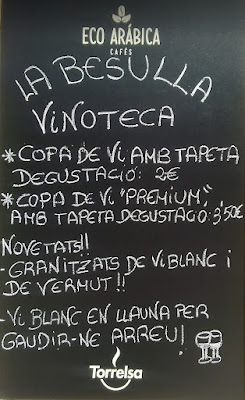 ECO ARÁBICA
CAFÉS
LA BESULLA
VINOTECA
*COPA DE VI AMB TAPETA
DEGUSTACIÓ: 2€
*COPA DE VI "PREMIUM",
AMB TAPETA DEGUSTACIO: 3,50€
NOVETATS!!
-GRANITZATS DE VI BLANC i
DE VERMUT!!
-VI BLANC EN LLAUNA PER
GAUDIR-NE ARREU!
Torrelsa